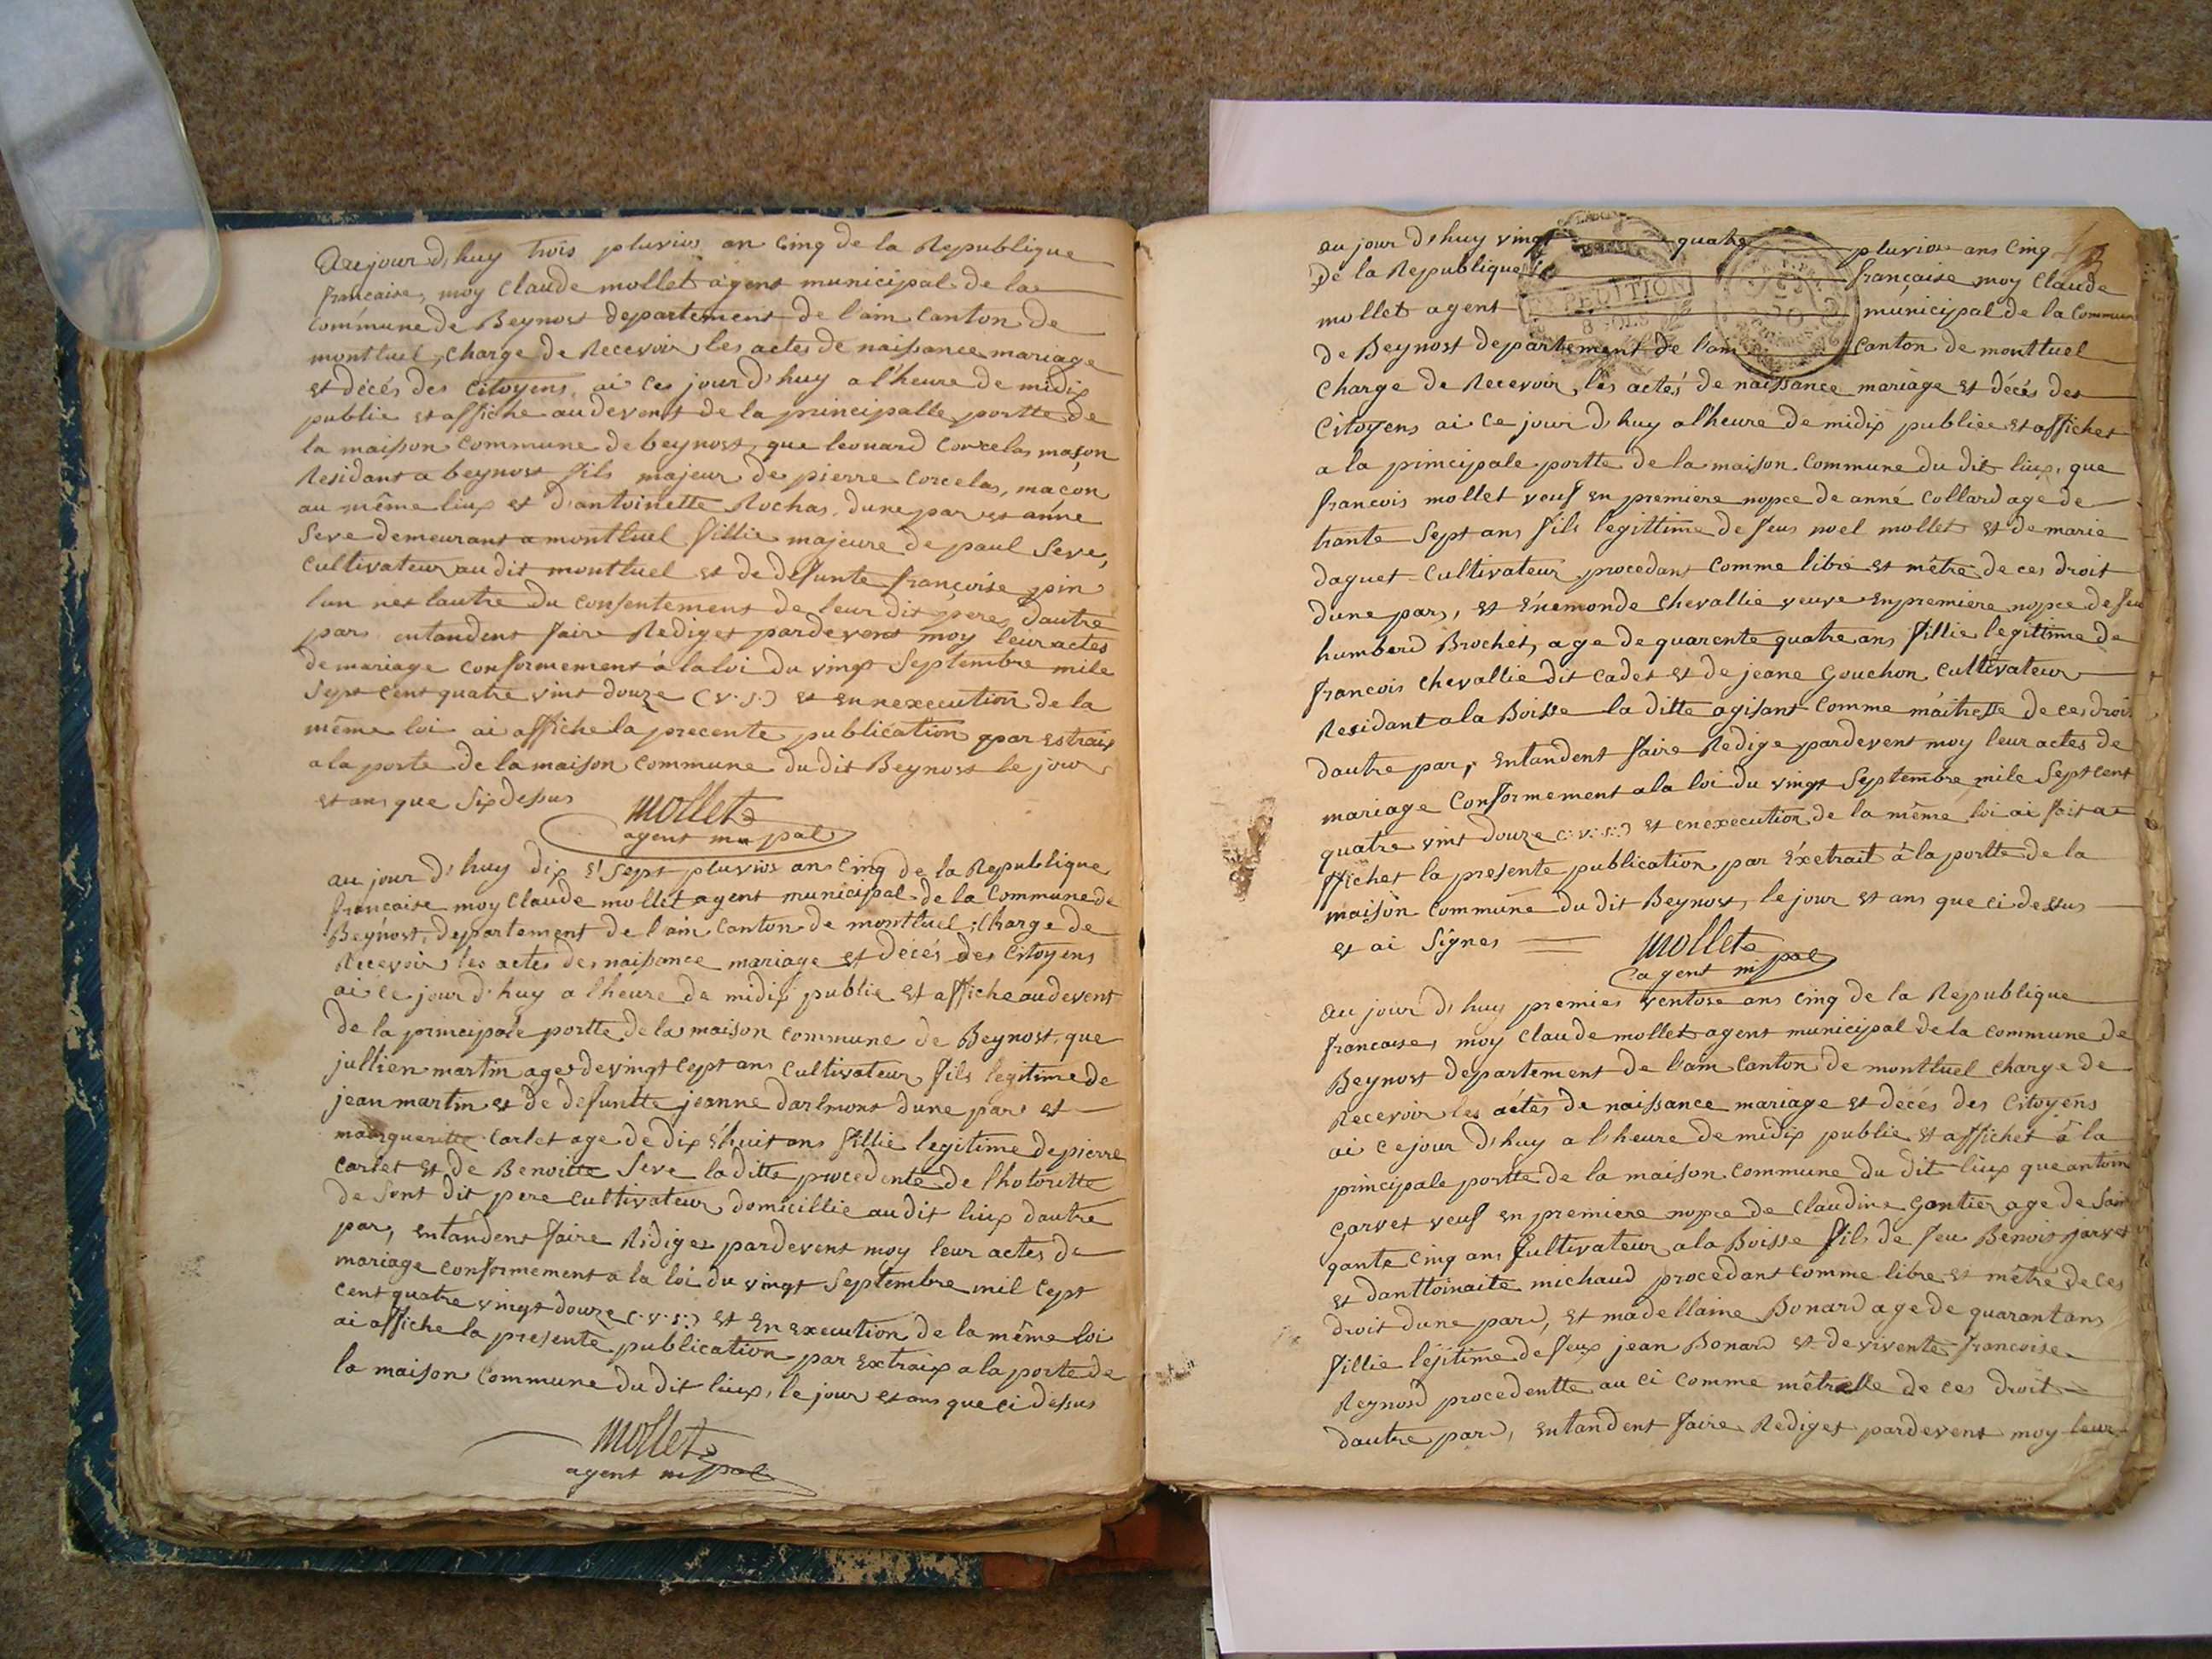 Au jour d'huy trois pluvios an Cinq de la Republique
francaise, moy Claude mollet agent municipal de la
Commune de Beynost departement de l'ain Canton de
montluel, Charge de Recevoir les actes de naissance mariage
et décés des Citoyens, ai ces jour d'huy a l'heure de midix
publie et affiche au devent de la principalle portte de
la maison Commune de beynost, que leonard Corcelas maçon
Residant a beynost fils majeur de pierre Corcelas, maçon
au même liux et d'antoinette Rochas, dune par et anne
Seve demeurant a montluel fillie majeure de paul Seve,
Cultivateur au dit montluel et de defunte françoise pin
lun net lautre du Consentement de leur dit peres, dautre
par entandent faire Rediget pardevent moy leur actes
de mariage Conformement à la loi du vingt Septembre mile
Sept Cent quatre vint douze (v.s.) et en nexecution de la
même loi ai affiche la precente publication par estraix
a la porte de la maison Commune du dit Beynost le jour
et ans que Six dessus
Mollet
agent mu pal
au jour d'huy dix Et Sept pluvios ans Cinq de la Republique
francaise moy Claude mollet agent municipal de la Commune de
Beynost, departement de l'ain Canton de montluel, Charge de
Recevoir les actes de naissance mariage et décés des Citoyens
ai ce jour d'huy a lheure de midix publie et affiche au devent
de la principale portte de la maison Commune de Beynost, que
jullien martin age de vingt Cept ans Cultivateur fils legitime de
jean martin et de defuntte jeanne darlmont dune par et
marguerite Carlet age de dix Ehuit ans fillie legitime de pierre
Carlet et de Benoitte Seve laditte procedente de lhotoritte
de Sont dit pere Cultivateur domicillie au dit liux dautre
par, entandent faire Rediget pardevent moy leur actes de
mariage Conformement a la loi du vingt Septembre mil Cept
Cent quatre vingt douze (:v:s:) et En execution de la même loi
ai affiche la presente publication par Extraix a la porte de
la maison Commune du dit liux, le jour et ans que ci dessus
Mollet
agent mpal
au jour d'huy vingt quatre pluvios ans Cinq
de la Republique francaise moy Claude
mollet agent municipal de la Commun
EXPEDITION
8 SOLS
de Beynost departement de l'ain Canton de montluel
Charge de Recevoir les actes de naissance mariage et décés des
Citoyens ai ce jour d'huy a lheure de midix publiee et affichet
a la principale portte de la maison Commune du dit liux, que
francois mollet veuf en premiere nopce de anné Collard age de
trante Sept ans fils legittime de feus noel mollet et de marie
daguet Cultivateur procedant Comme libre et mêtre de ces droit
dune par, et Enemonde Chevallie veuve en premiere nopce de feu
humberd Brochet, age de quarente quatre ans fillie legittime de
francois Chevallie dit Cadet et de jeane Gouchon Cultivateur
Residant a la Boisse la ditte agisant Comme maitresse de ces droit
dautre par, Entandent faire Redige pardevent moy leur actes de
mariage Conformement a la loi du vingt Septembre mile Sept Cent
quatre vint douze (:v:s:) et en execution de la même loi ai fait a
ffichet la presente publication par Éxetrait à la portte de la
maison Commune du dit Beynost, le jour et ans que ci dessus
et ai Signes Mollet
agent mpal
Au jour d'huy premier ventose ans Cinq de la Republique
francaise, moy Claude mollet agent municipal de la Commune de
Beynost departement de l'ain Canton de montluel Charge de
Recevoir les actes de naissance mariage et décés des Citoyens
ai ce jour d'huy a l'heure de midix publie et affichet à la
principale portte de la maison Commune du dit liux que antoin
garvet veuf en premiere nopce de Claudine Gontier age de Soin
qante Cinq ans Cultivateur a la Boisse fils de feu Benoit garvet
et danttoinaite michaud procedant comme libre et mêtre de ces
droit dune par, et madellaine Bonard age de quarant ans
fillie léjitime de feux jean Bonard et de vivente francoise
Reynard procedentte au ci Comme mêtresse de ces droit
dautre par, Entandent faire Rediget pardevent moy leur